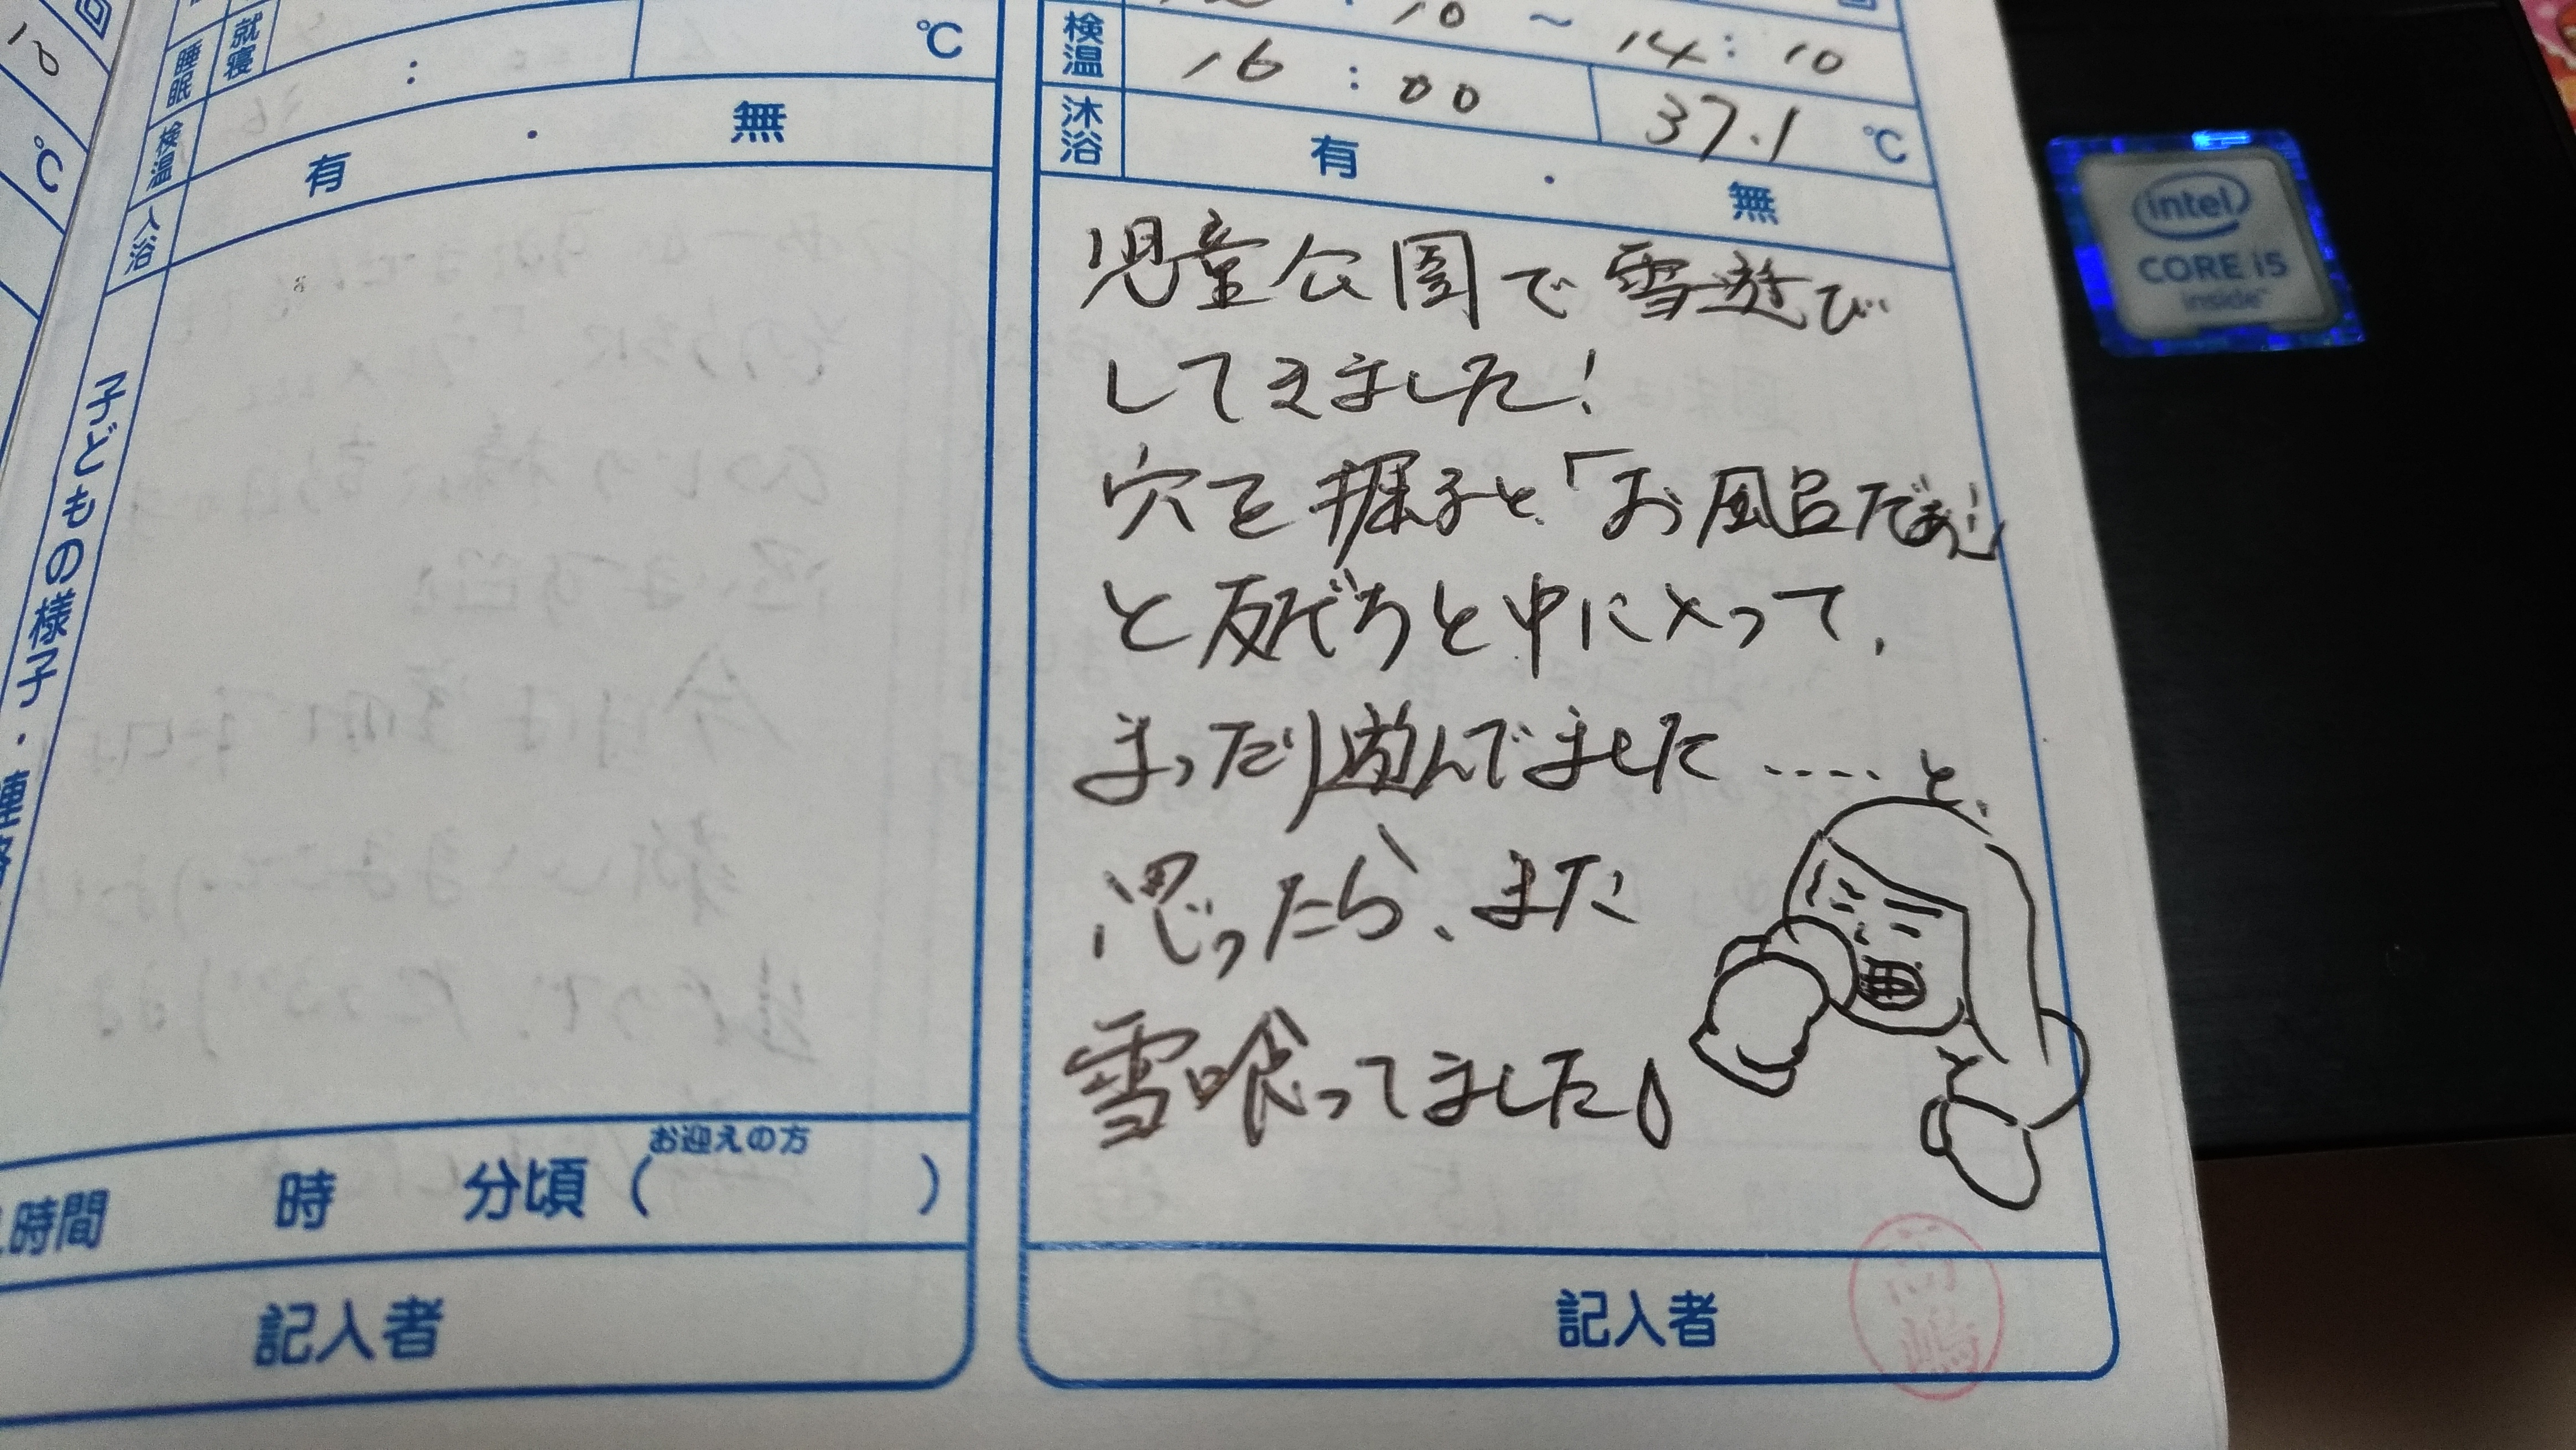 10
℃
睡眠
就寝
:
℃
検温
入浴
有 ・ 無
子どもの様子・
時間 時 分頃( )
お迎えの方
記入者
:10 ~ 14:10
検温
16:00
37.1 ℃
沐浴
有 ・ 無
児童公園で雪遊び
してきました!
穴を掘ると「お風呂だぁ!」
と友だちと中に入って、
まったり遊んでました……と、
思ったら、また
雪喰ってました
記入者
intel
CORE i5
inside™